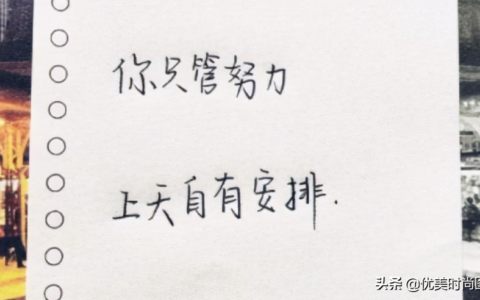 你只管努力
上天自有安排.
头条 @优美时尚